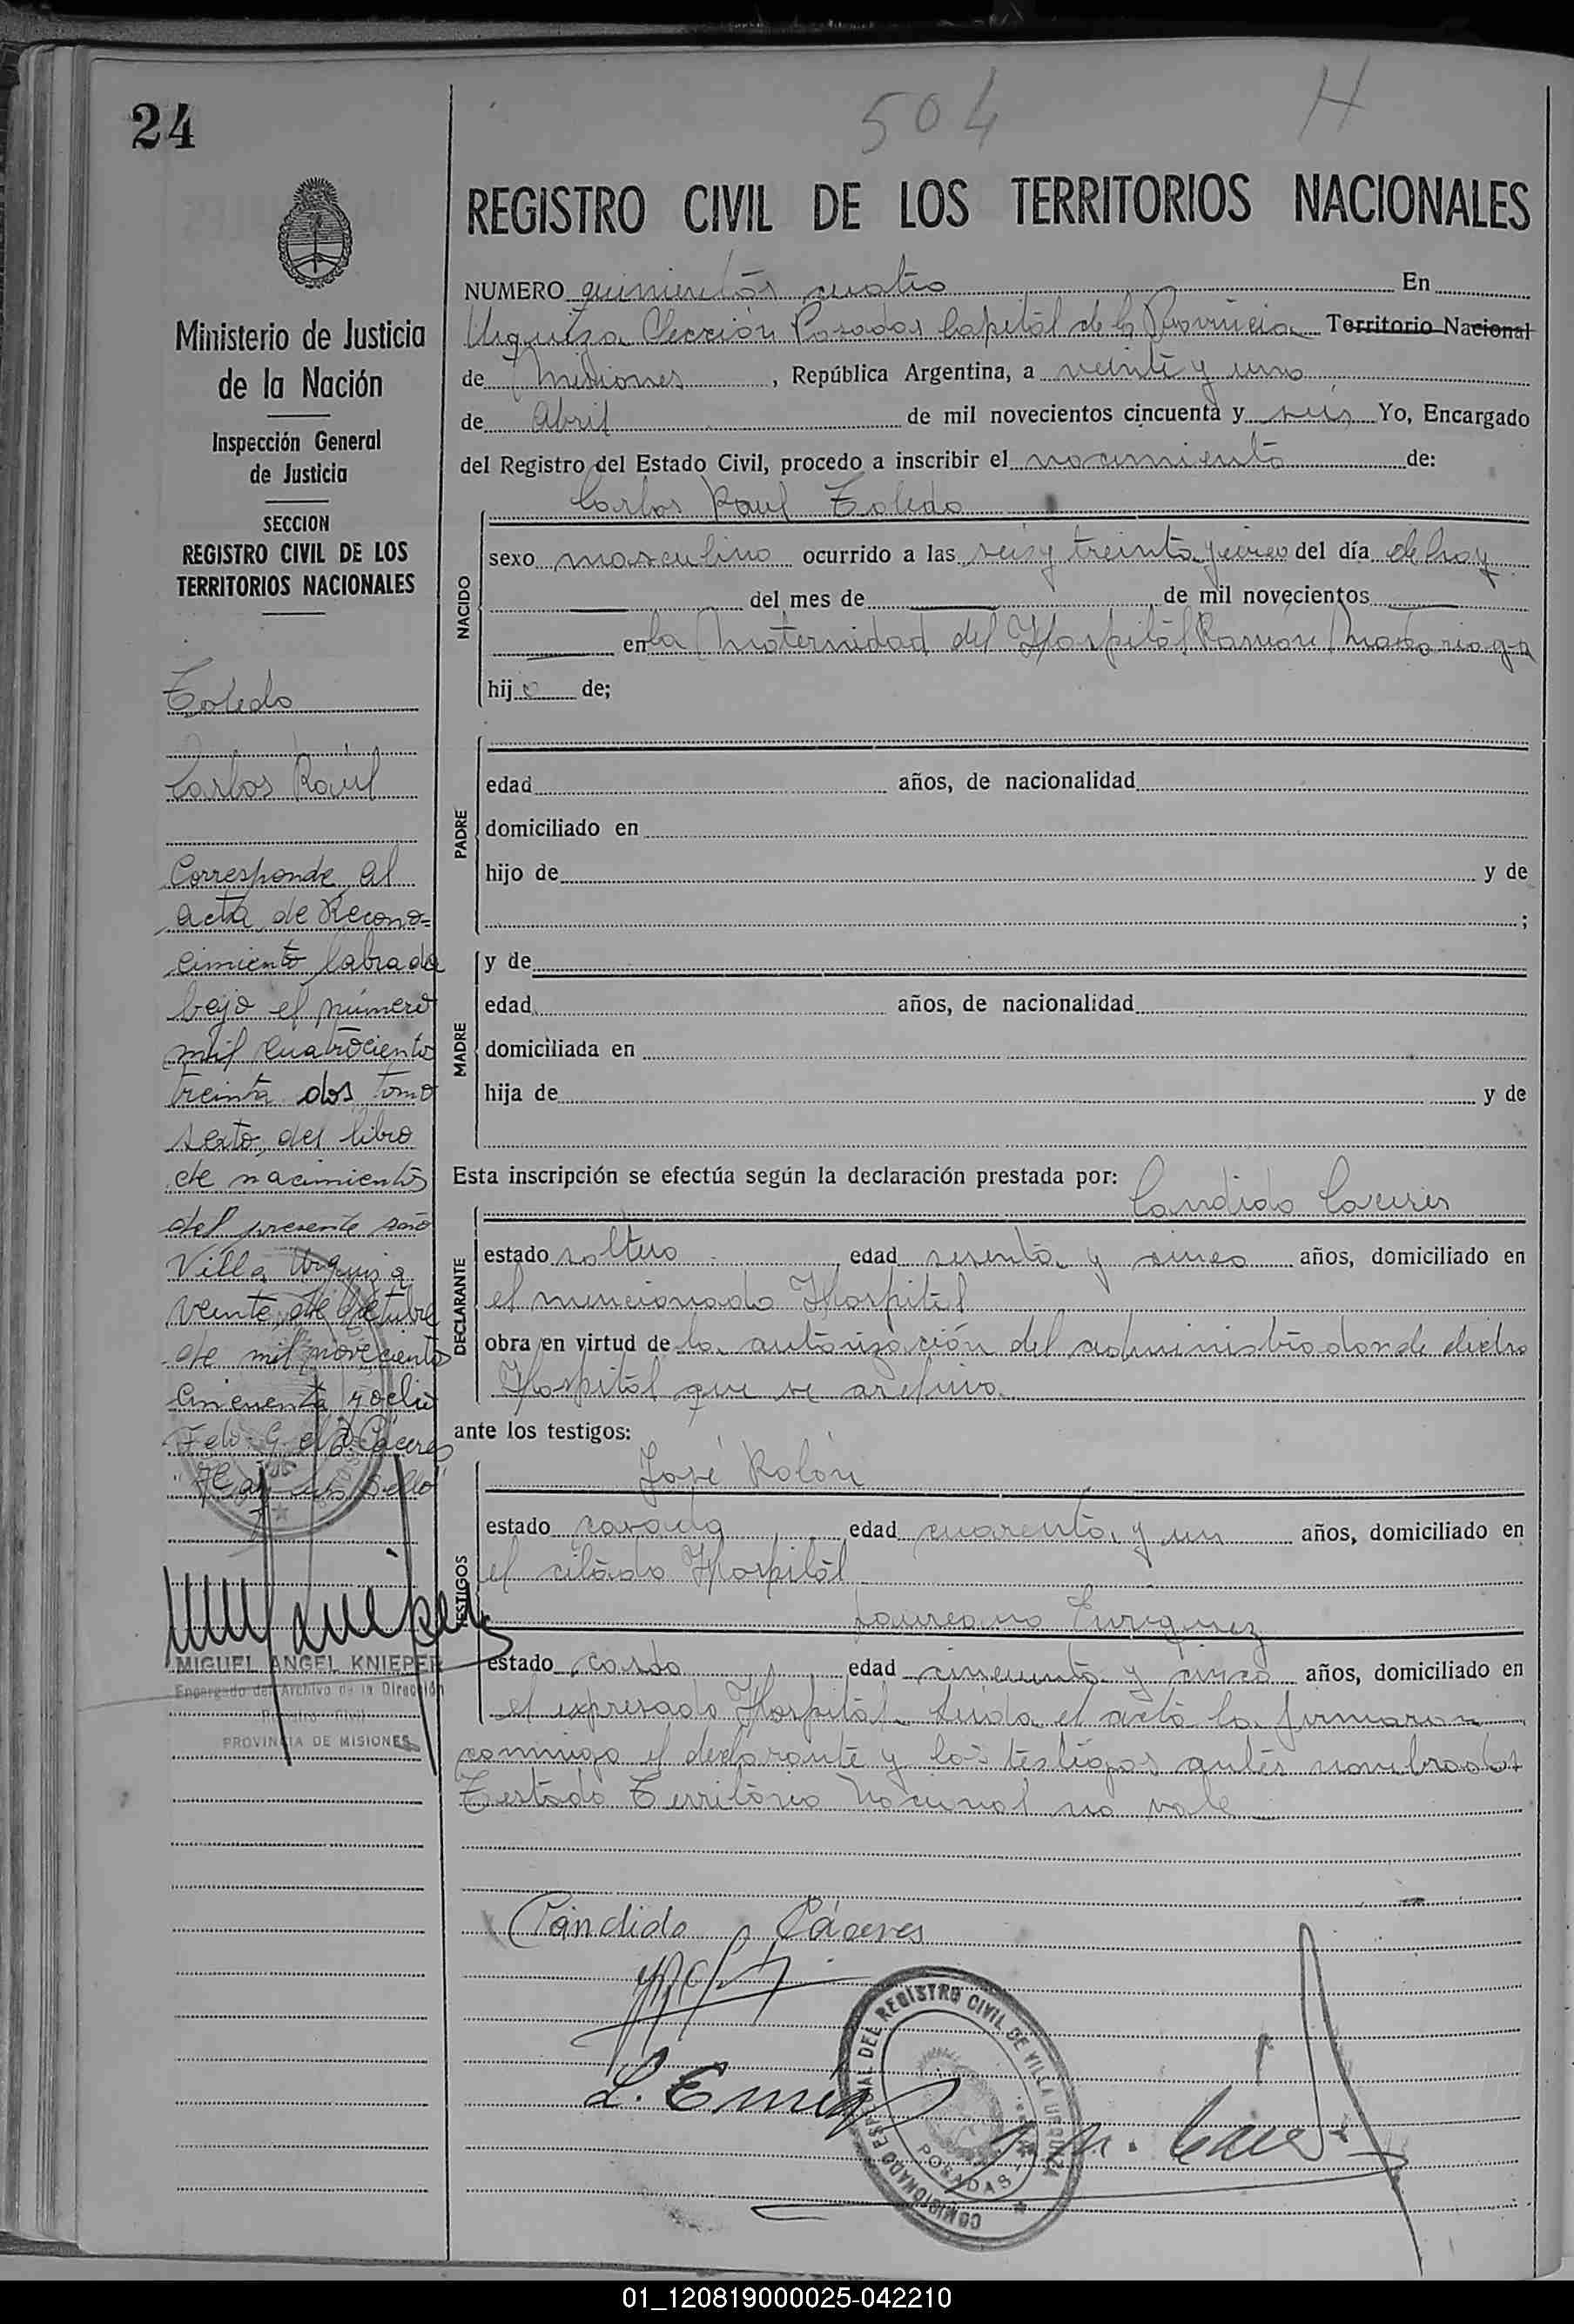 24
504
H
Ministerio de Justicia
de la Nación
Inspección General
de Justicia
SECCION
REGISTRO CIVIL DE LOS
TERRITORIOS NACIONALES
Toledo
Carlos Raúl
Corresponde al
acta de Recono-
cimiento labrada
bajo el número
mil cuatrociento
treinta dos tomo
sexto del libro
de nacimientos
del presente año
Villa Urquiza
veinte de Octubre
de mil noveciento
cincuenta y ocho
Cáceres
Sello
MIGUEL ANGEL KNIEPER
Encargado del Archivo de la Dirección
Registro Civil
PROVINCIA DE MISIONES
REGISTRO CIVIL DE LOS TERRITORIOS NACIONALES
NUMERO quinientos cuatro En
Urquiza Sección Posadas Capital de la Provincia Territorio Nacional
de Misiones, República Argentina, a veinte y uno
de Abril de mil novecientos cincuenta y seis Yo, Encargado
del Registro del Estado Civil, procedo a inscribir el nacimiento de:
Carlos Raul Toledo
NACIDO
sexo masculino ocurrido a las seis y treinta y cinco del día de hoy
del mes de de mil novecientos
en la Maternidad del Hospital Ramón Madariaga
hijo de;
PADRE
edad años, de nacionalidad
domiciliado en
hijo de y de
;
MADRE
y de
edad años, de nacionalidad
domiciliada en
hija de y de
Esta inscripción se efectúa según la declaración prestada por:
Candido Caceres
DECLARANTE
estado soltero edad sesenta y cinco años, domiciliado en
el mencionado Hospital
obra en virtud de la autorización del administrador de dicho
Hospital que se archiva.
ante los testigos:
José Rolón
TESTIGOS
estado casado edad cuarenta y un años, domiciliado en
el citado Hospital
Laureano Enriquez
estado casdo edad cincuenta y cinco años, domiciliado en
el expresado Hospital. Leida el acta la firmaron
conmigo el declarante y los testigos antes nombrados
Testado Territorio Nacional no vale
Cándido Cáceres
L. Enriq
COMISIONADO ESPECIAL DEL REGISTRO CIVIL DE VILLA URQUIZA
POSADAS
01_120819000025-042210